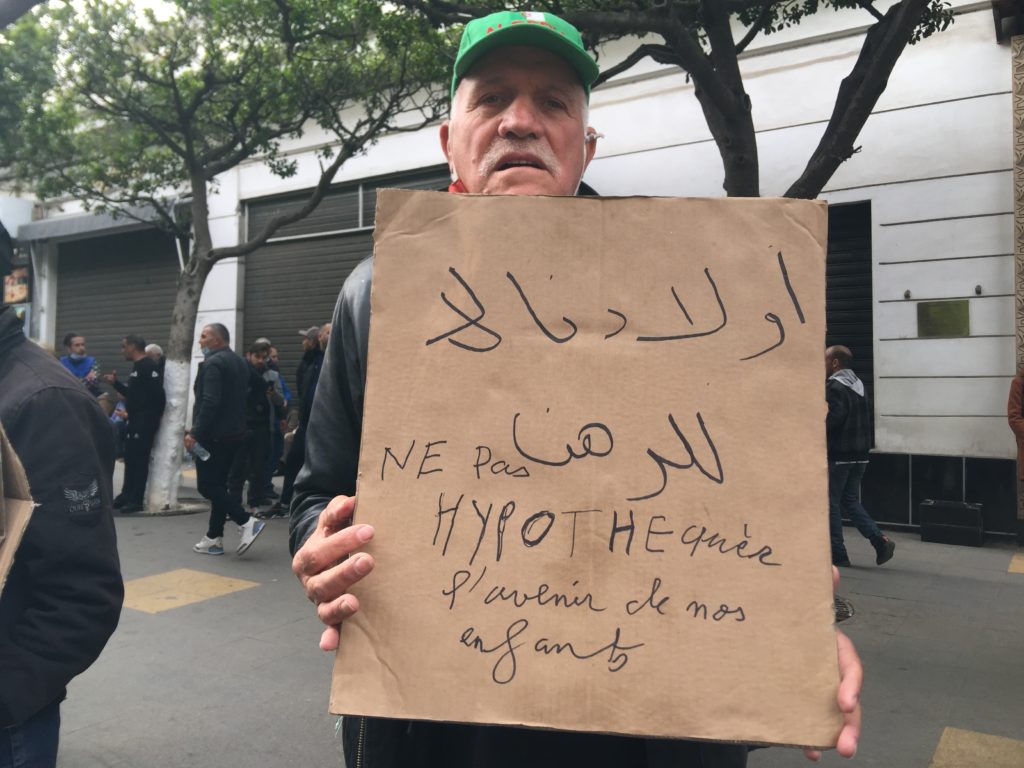 اولادنا لا
للرهن
NE Pas
HYPOTHEQuèr
l'avenir de nos
enfants